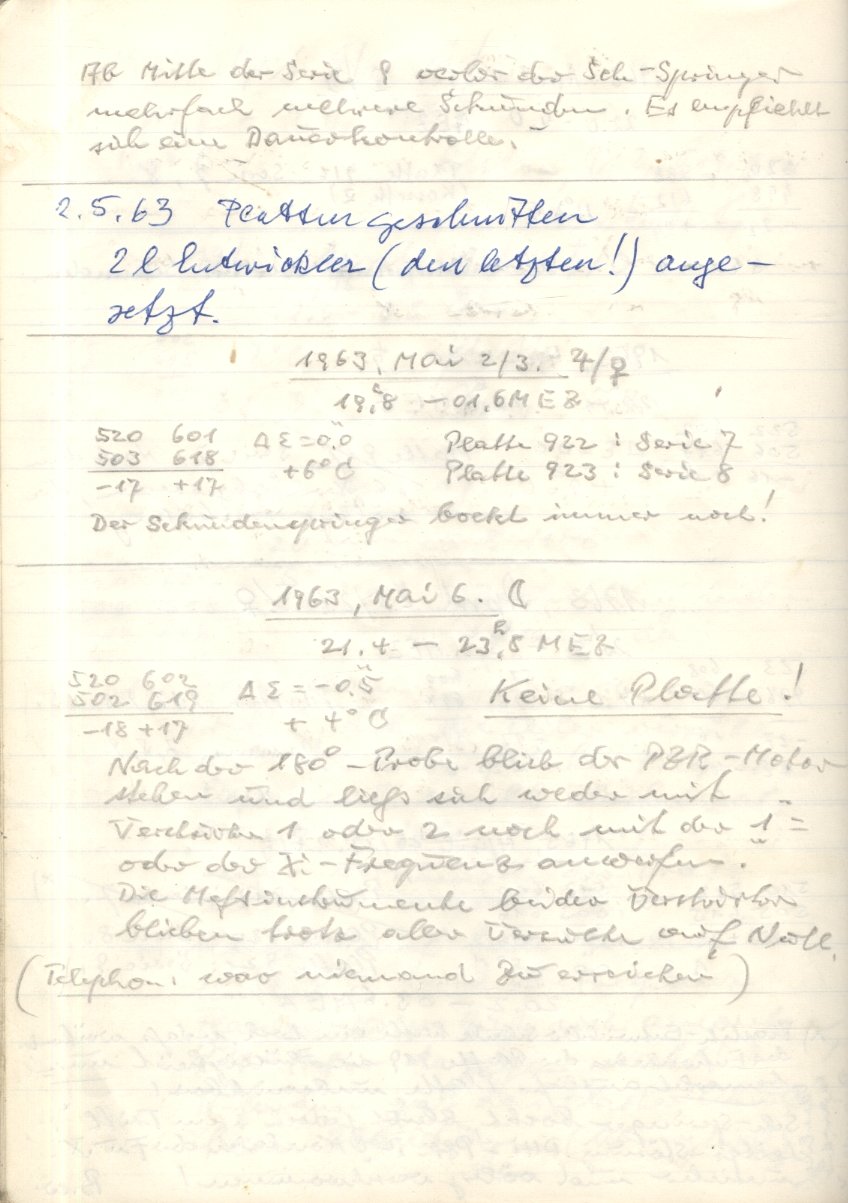 Ab Mitte der Serie 9 verlor der Sek-Springer
mehrfach mehrere Sekunden. Es empfiehlt
sich eine Dauerkontrolle.
2.5.63 Platten geschnitten
2 l Entwickler (den letzten!) ange-
setzt.
1963, Mai 2/3. ♃/♀
19,h8 – 01,6 MEZ
520 601 ΔΣ=0,"0 Platte 922 : Serie 7
503 618 +6°C Platte 923 : Serie 8
-17 +17
Der Sekundenspringer bockt immer noch!
1963, Mai 6. ☾
21.4 – 23,h8 MEZ
520 602 ΔΣ=-0,"5 Keine Platte!
502 619 + 4°C
-18 +17
Nach der 180°-Probe blieb der PZR-Motor
stehen und ließ sich weder mit
Verstärker 1 oder 2 noch mit der 1=
oder der Xi-Frequenz anwerfen.
Die Meßinstrumente beider Verstärker
blieben trotz aller Versuche auf Null.
(Telephon. war niemand zu erreichen)